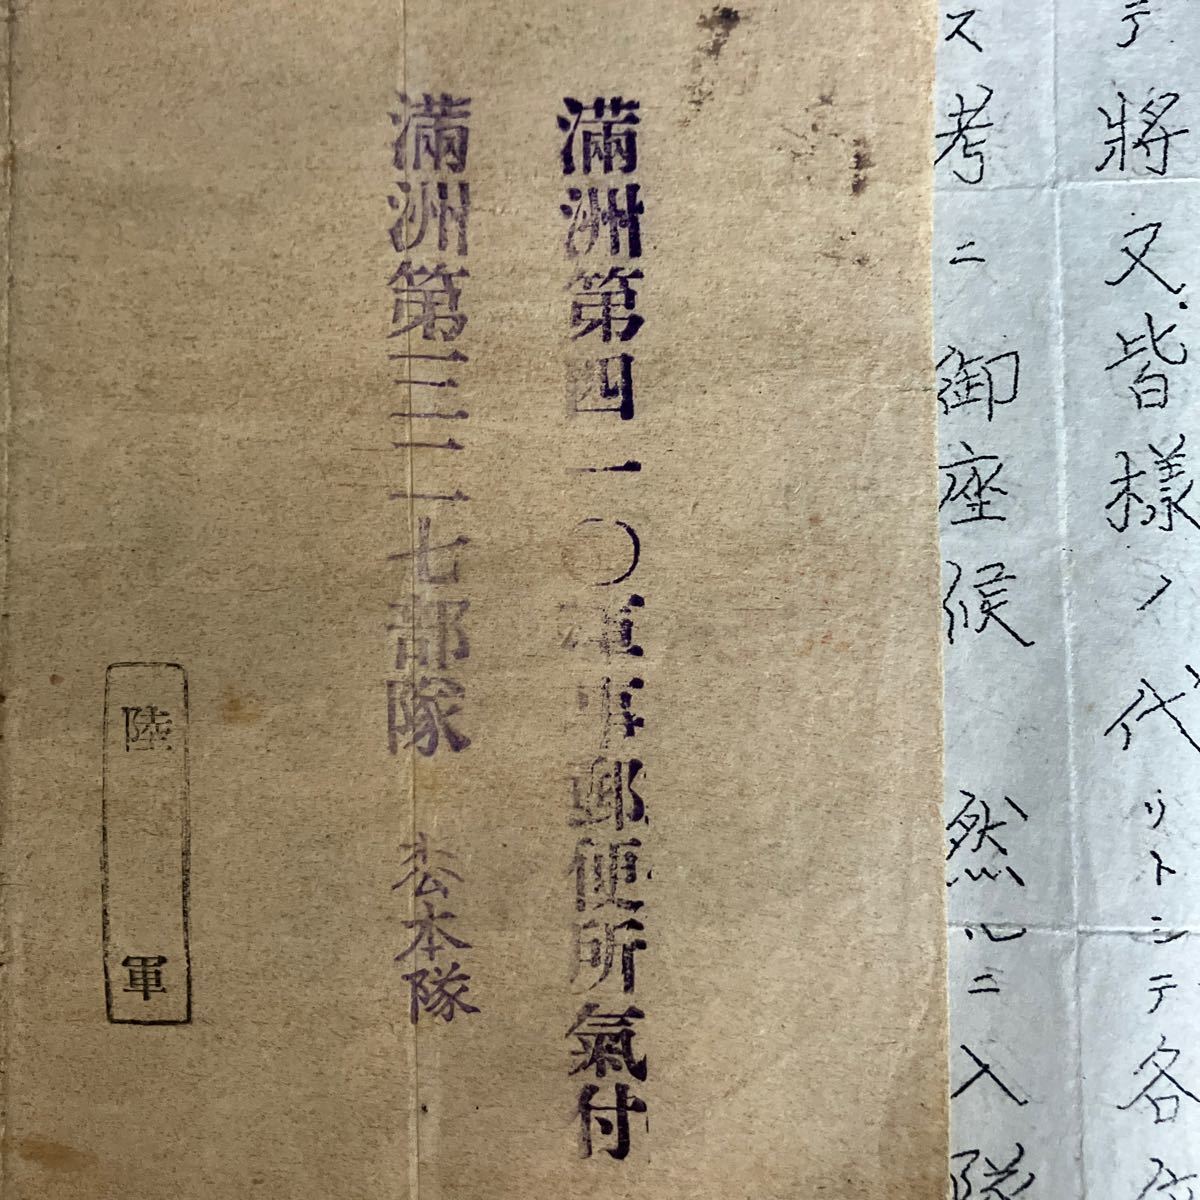 テ將又皆様ノ代リトシテ各
ス考ニ御座候 然ルニ入隊
滿洲第四一〇軍事郵便所氣付
滿洲第三二七部隊 松本隊
陸軍